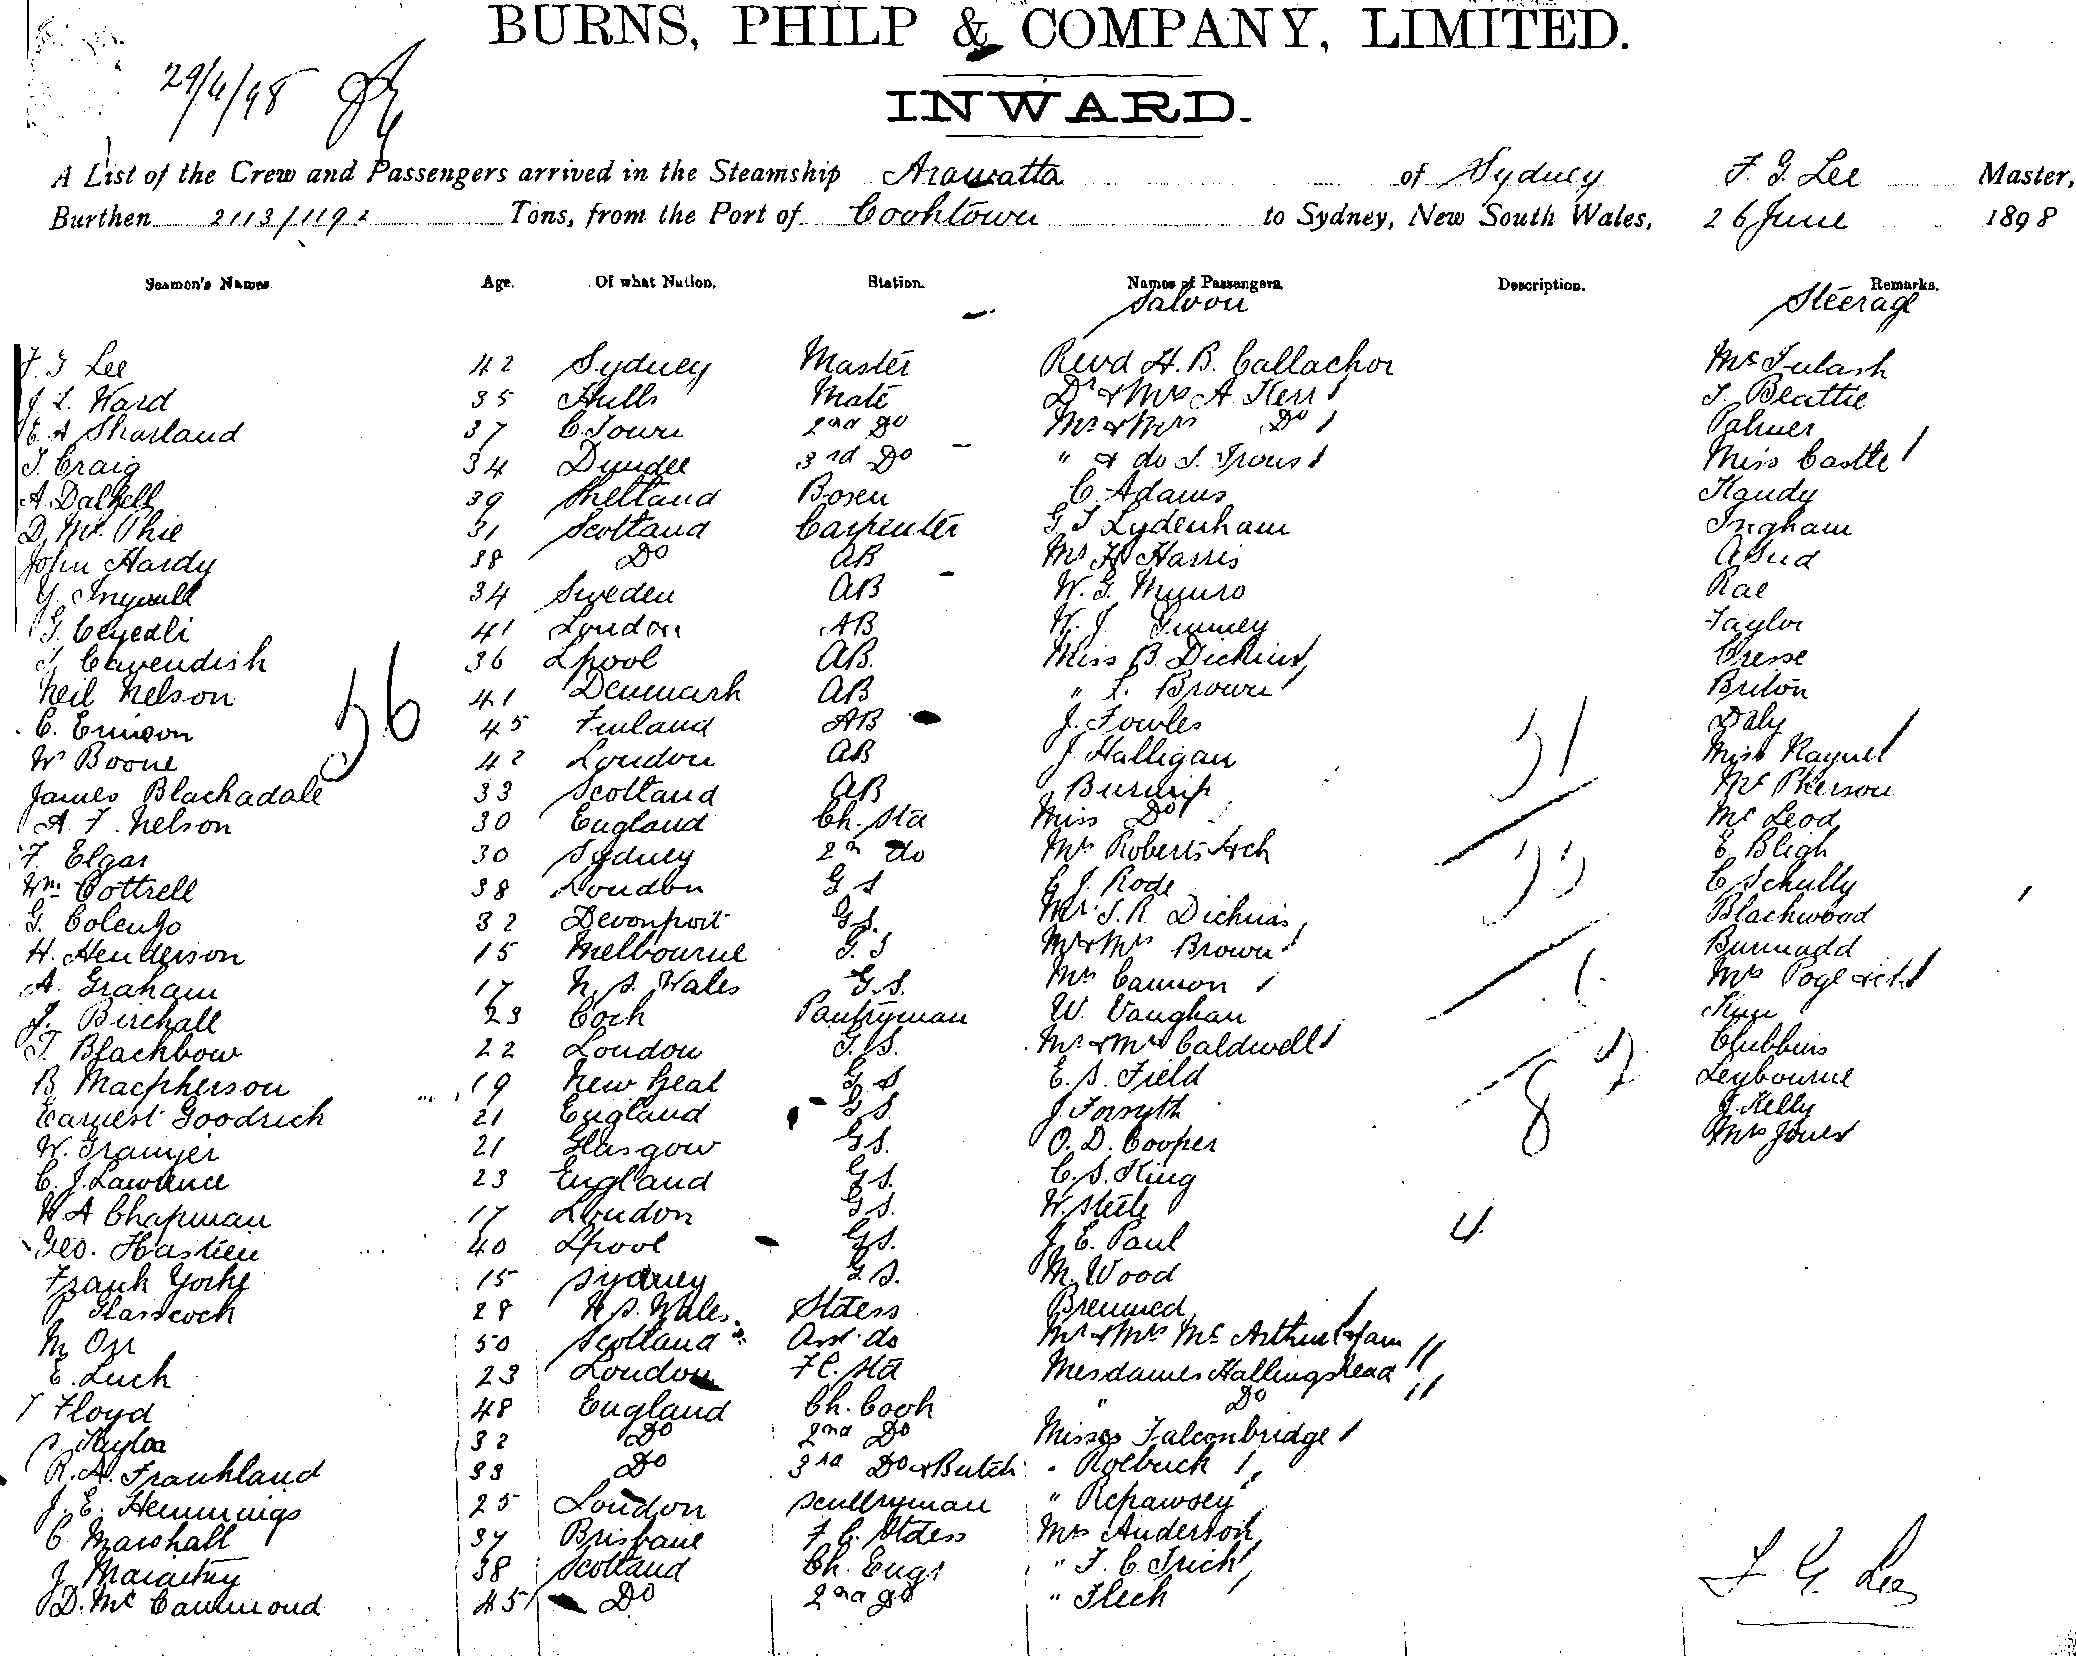 BURNS, PHILP & COMPANY, LIMITED.
29/6/98
INWARD.
A List of the Crew and Passengers arrived in the Steamship Arawatta of Sydney F. G. Lee Master,
Burthen 2113/1192 Tons, from the Port of Cooktown to Sydney, New South Wales, 26 June 1898
Seamen's Names. Age. Of what Nation. Station. Names of Passengers. Description. Remarks.
Saloon Steerage
F. G Lee 42 Sydney Master Revd H. B. Callachor
J. L. Ward 35 Hulls Mate Dr & Mrs A. Kerr T. Beattie
E A Sharland 37 C. Town 2nd Do Mr & Mrs Do Palmer
T. Craig 34 Dundee 3rd Do " & do J. Irons Miss Castle
A. Dalzell 39 Shetland Bosen C. Adams Kandy
D. Mc. Phie 31 Scotland Carpenter G. T Lydenham Ingham
John Hardy 38 Do AB Mr H Harris
34 Sweden AB W. G. Munro Rae
41 London AB W. J. Taylor
J. Cavendish 36 Lpool AB. Miss B. Dickins Cresse
Neil Nelson 41 Denmark AB " L. Brown Briton
C. 45 Finland AB J. Fowles Daly
W Boone 42 London AB J Halligan Miss Raynel
James Blackadale 33 Scotland AB Mc Pherson
A. F. Nelson 30 England Ch. Std Miss Do Mc Leod
F. Elgar 30 Sydney 2nd do Mrs Roberts & ch E Bligh
Wm. Cottrell 38 London G S G J. Rode C Schully
G. Colenso 32 Devonport G. S. Mr. S. R. Dickins Blackwood
H. Henderson 15 Melbourne G. S Mr & Mrs Brown Bunnadd
A. Graham 17 N. S. Wales G. S. Mrs Cannon Mrs Page & ch
J. Birchall 23 Cork Pantryman W. Vaughan
T. Blackbow 22 London G. S. Mr & Mrs Caldwell Chubbins
B Macpherson 19 New Zeal G S E. S. Field Leybourne
Earnest Goodrich 21 England G S. J. Forsyth J. Kelly
W. Grainger 21 Glasgow G S. O. D. Cooper Mrs Jones
C. J. Lawrence 23 England G S. C. S. King
W A Chapman 17 London G S. W. Steele
Geo. Hastien 40 Lpool G S. J. E. Paul
Frank Yorke 15 Sydney G. S. M. Wood
P Glasscock 28 N. S. Wales Stdess
M Orr 50 Scotland Asst. do Mr & Mrs Mc Arthur & fam
E. Luck 23 London F C. Std Mesdames Hallingshead
Floyd 48 England Ch. Cook " Do
32 Do 2nd Do Misses Falconbridge
R. A. Frankland 33 Do 3rd Do & Butch " Roebuck
J. E. Hemmings 25 London Scullryman " Repawsey
C Marshall 37 Brisbane F. C. Stdess Mrs Anderson
J Macartny 38 Scotland Ch. Engr " F. C. Trick
D. Mc Cammond 45 Do 2nd Do " Fleck
56
31
33
1
2
8
4
F G Lee